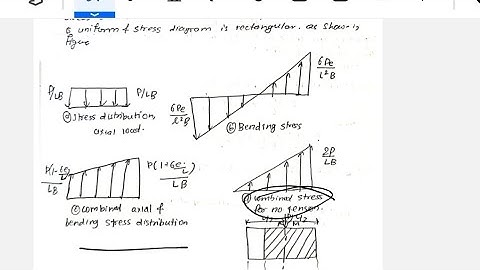 & uniform & stress diagram is rectangular. as shown in
figure
P/LB
P/LB
ⓐ Stress distribution
axial load.
6Pe
L²B
6Pe
L²B
ⓑ Bending stress
P(1-6e/L)
LB
P(1+6e/L)
LB
ⓒ Combined axial &
bending stress distribution
2P
LB
Combined stress
for no tension.
L/2
M